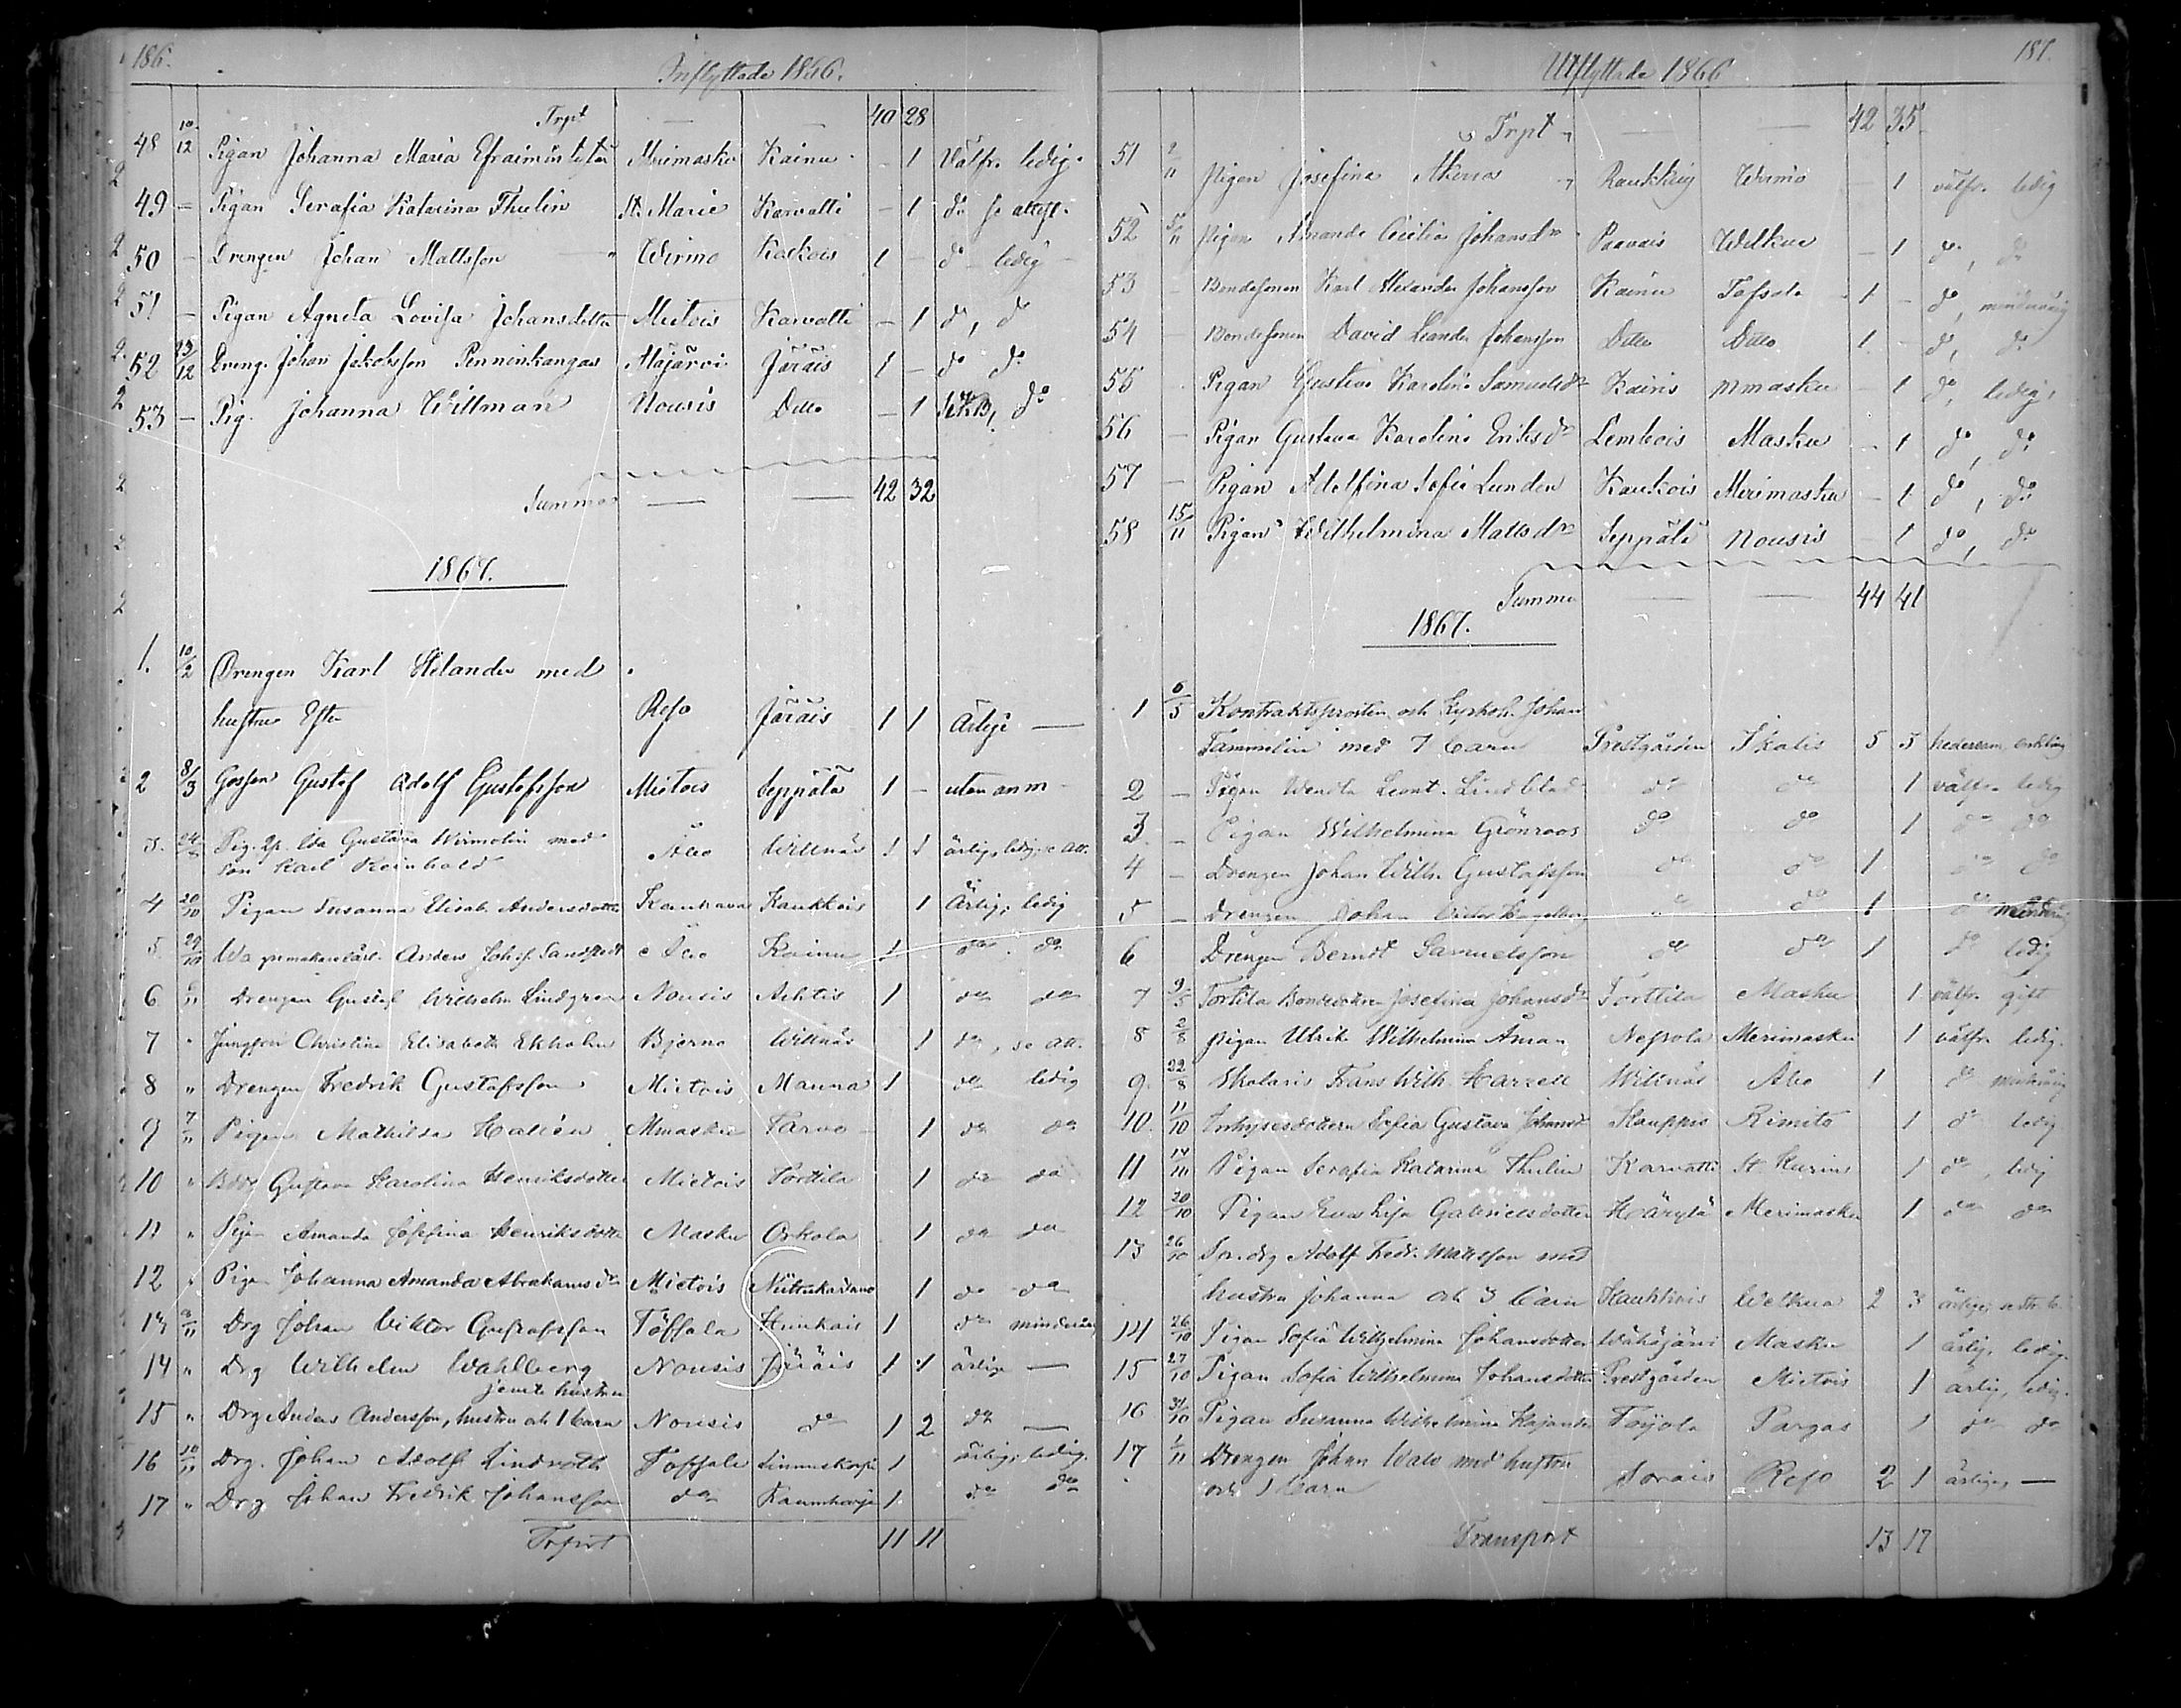 186.
Inflyttade 1866.
Trpt — — 40 28
48 10/12 Pigan Johanna Maria Efraimsdotter Merimasku Kainu - 1 välfr. ledig.
49 — Pigan Serafia Katarina Thulin St. Marie Karvatti - 1 do se attest.
50 — Drengen Johan Mattsson Wirmo Kaskois 1 - do ledig
51 — Pigan Agneta Lovisa Johansdotter Mietois Karvatti - 1 do, do
52 13/12 Dreng. Johan Jakobsson Penninkangas Alajärvi Järäis 1 - do do
53 — Pig. Johanna Willman Nousis Ditto - 1 do
Summa — — 42 32
1867.
1. 10/2 Drengen Karl Helander med
hustru Ester Reso Järäis 1 1 Ärlige —
2 8/3 Gossen Gustaf Adolf Gustafsson Mietois Seppälä 1 - utan anm.
3. 24/ Pig. Ida Gustava Wirmolin med
son Karl Reinhold Åbo Willnäs 1 1 ärlig, ledig, se att.
4 20/10 Pigan Susanna Elisab. Andersdotter Kaukkois 1 Ärlig, ledig
5. 29/10 Anders Johsf. Sandstedt Åbo Kainu 1 do do
6 /11 Drengen Gustaf Wilhelm Lindgren Nousis Ahtis 1 do do
7 " Jungfru Christina Elisabeth Ekholm Bjerno Willnäs 1 do, se att.
8 " Drengen Fredrik Gustafsson Mietois Manna 1 do ledig
9 7/11 Pigan Mathilda Halién Mmasku Tarvo 1 do do
10 " Bdtr Gustava Karolina Henriksdotter Mietois Torttila 1 do do
11 " Pigan Amanda Josefina Henriksdotter Masku Orkola 1 do do
12 " Pigan Johanna Amanda Abrahamsdr Mietois 1 do do
13 /11 Drg Johan Viktor Gustafsson Töffala Hunkais 1 do minderårig
14 " Drg Wilhelm Wahlberg Nousis Järäis 1 1 ärlige —
jemte hustru
15 " Drg Anders Andersson, hustru och 1 barn Nousis do 1 2 do —
16 10/11 Drg. Johan Adolf Lindroth Toffala 1 ärlig, ledig.
17 " Drg Johan Fredrik Johansson do 1 do do
Trsprt 11 11
187.
Utflyttade 1866
Trpt — — 42 35
51 2/11 Pigan Josefina Wirmo - 1 välfr. ledig
52 5/11 Pigan Amanda Cecilia Johansdr Paavais Welkua - 1 do, do
53 — Bondesonen Karl Alexander Johansson Kainu Tofsala 1 - do, minderårig
54 — Bondesonen David Leander Johansson Ditto Ditto 1 - do, do
55 — Pigan Gustava Karolina Samuelsdr Kairis Mmasku - 1 do, ledig,
56 — Pigan Gustava Karolina Eriksdr Lembois Masku - 1 do, do
57 — Pigan Adolfina Sofia Lunden Kaukois Merimasku - 1 do, do
58 15/11 Pigan Wilhelmina Mattsdr Seppälä Nousis 1 do, do
Summa — — 44 41
1867.
1 6/5 Kontraktsprosten och Kyrkoh. Johan
Tammelin med 7 barn Prestgården Ikalis 5 3 hedersam, enkling
2 — Pigan Wendla Leont. Lindblad do do 1 välfr. ledig
3. — Pigan Wilhelmina Grönroos do do 1 do do
4 — Drengen Johan Wilh. Gustafsson do do 1 do do
5 — Drengen Johan Victor do do 1 do minderårig
6 Drengen Berndt Samuelsson do do 1 do ledig
7 9/5 Tortila Bondehustrun Josefina Johansdr Torttila Masku 1 välfr. gift
8 2/8 Pigan Ulrika Wilhelmina Åman Nessola Merimasku 1 välfr. ledig.
9. 22/8 Skolaris Frans Wilh. Harzell Willnäs Åbo 1 do minderårig
10. 11/10 Inhysesdottern Sofia Gustava Johansd Kauppis Rimito 1 do ledig
11 14/10 Pigan Serafia Katarina Thulin Karvatti St Karins 1 do, ledig
12 20/10 Pigan Eva Lisa Gabrielsdotter Härylä Merimasku 1 do do
13 26/10 Sp. drg Adolf Fredr. Mattsson med
hustru Johanna och 3 barn Kaukkois Welkua 2 3
14 26/10 Pigan Sofia Wilhelmina Johansdotter Wähäjärvi Masku 1 ärlig, ledig.
15 27/10 Pigan Sofia Wilhelmina Johansdotter Prestgården Mietois 1 ärlig, ledig.
16 31/10 Pigan Susanna Wilhelmina Kajander Taijola Pargas 1 do do
17 1/11 Drengen Johan Walo med hustru
och 1 barn Sorais Reso 2 1 ärlige, —
Transport 13 17